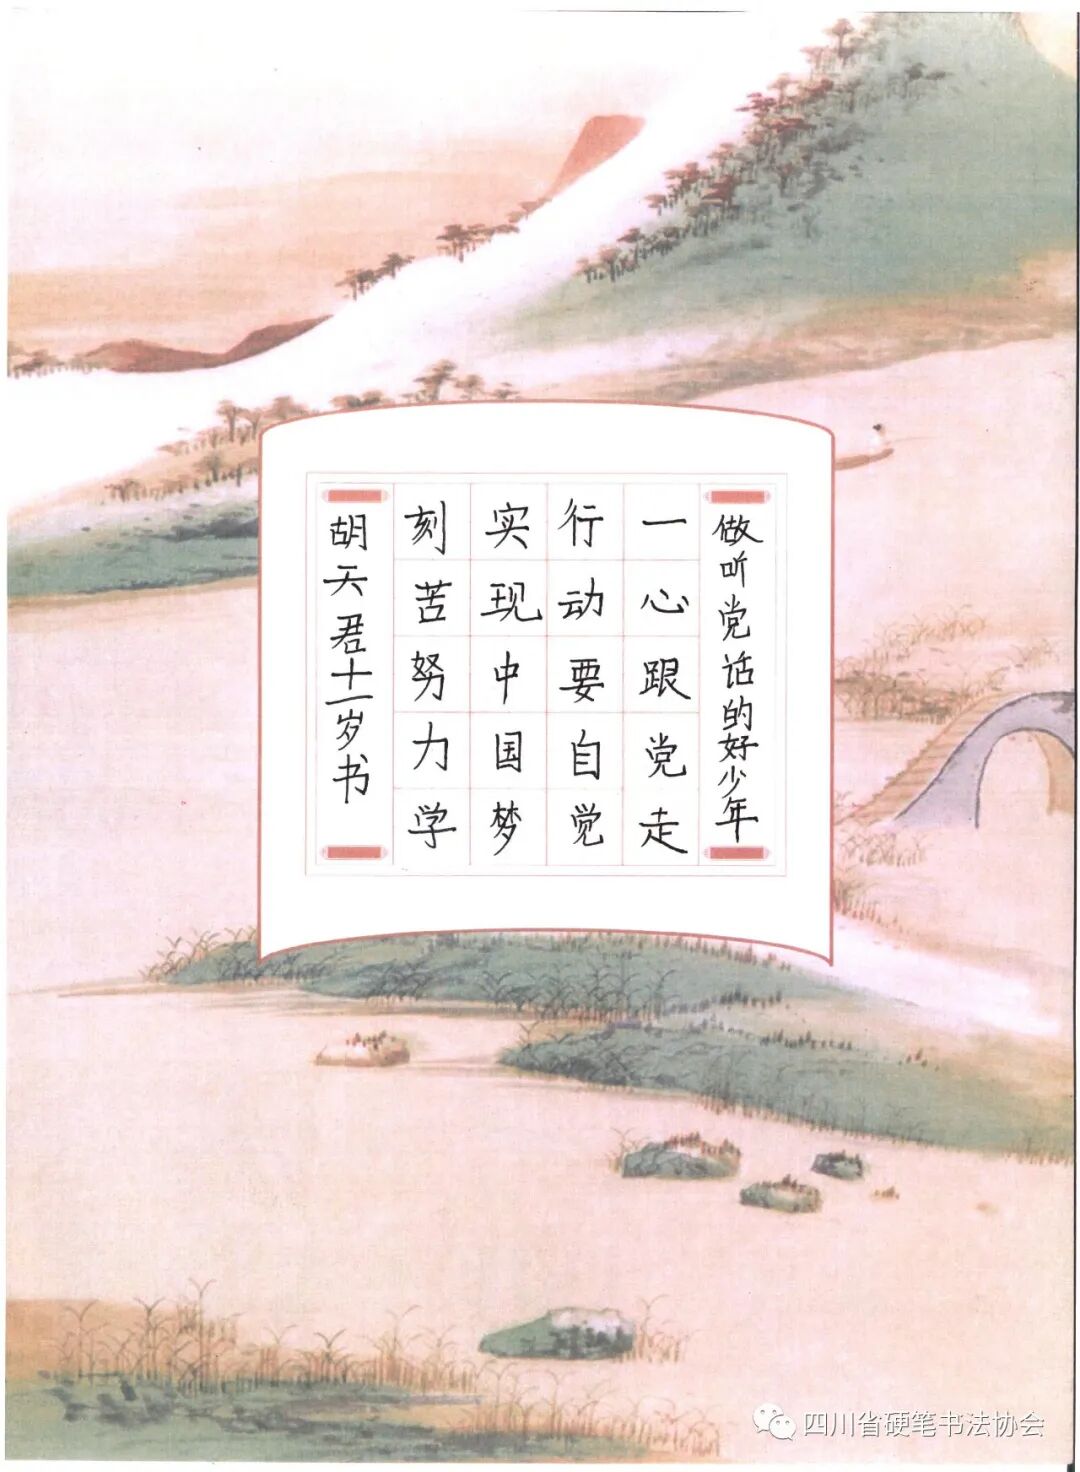 做听党话的好少年
一心跟党走
行动要自觉
实现中国梦
刻苦努力学
胡天君十一岁书
四川省硬笔书法协会